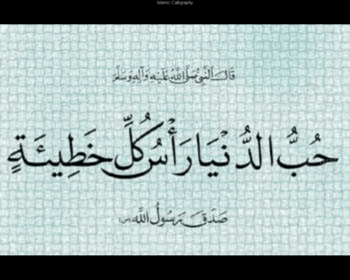 Islamic Caligraphy
قَالَ النَّبِيُّ صَلَّى اللَّهُ عَلَيْهِ وَآلِهِ وَسَلَّمَ
حُبُّ الدُّنْيَا رَأْسُ كُلِّ خَطِيئَةٍ
صَدَقَ رَسُولُ اللَّهِ